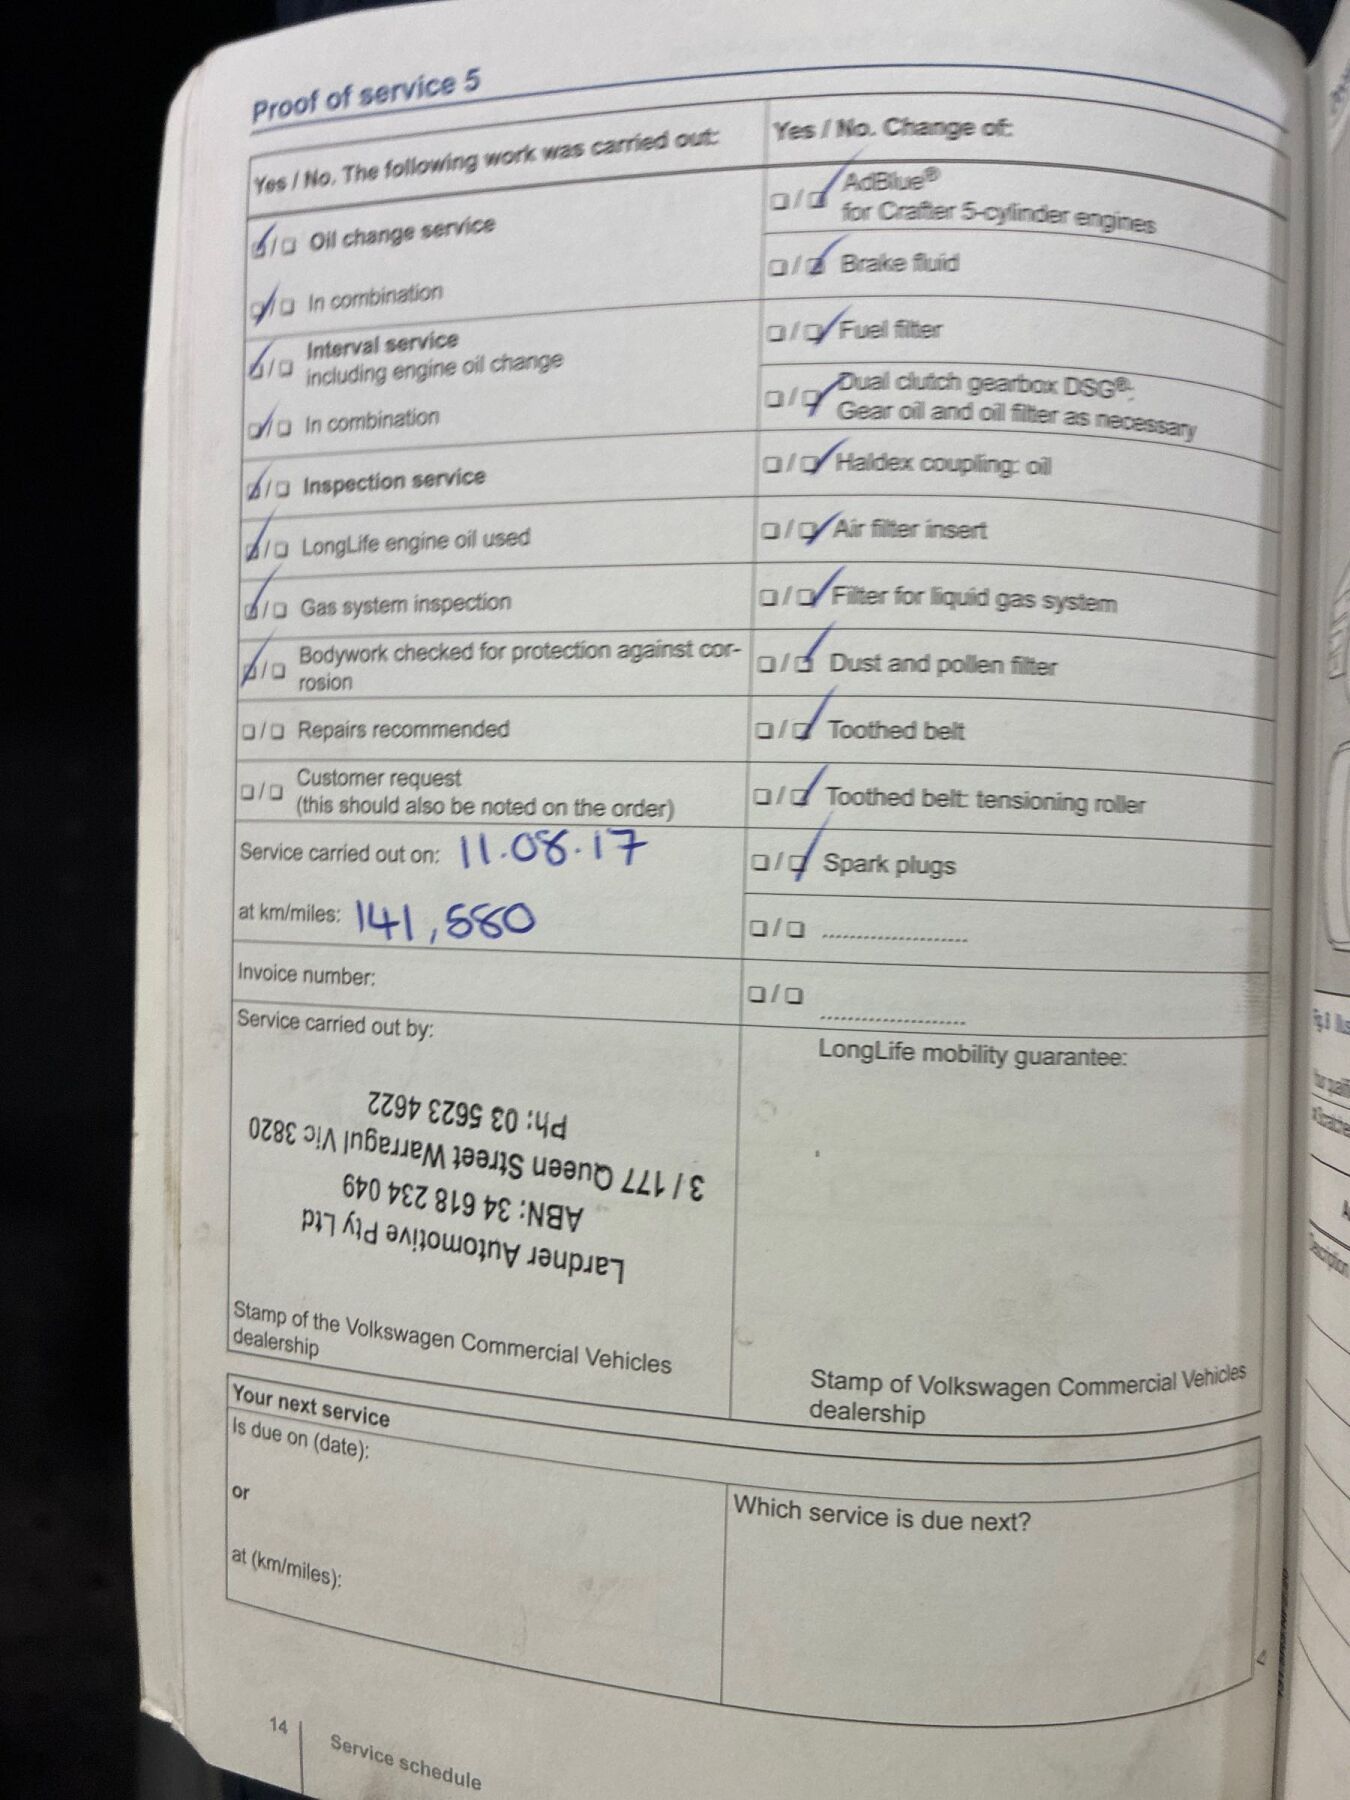 Proof of service 5
Yes / No. The following work was carried out:
☑/☐ Oil change service
☑/☐ In combination
☑/☐ Interval service
including engine oil change
☑/☐ In combination
☑/☐ Inspection service
☑/☐ LongLife engine oil used
☑/☐ Gas system inspection
☑/☐ Bodywork checked for protection against cor-
rosion
☐/☐ Repairs recommended
☐/☐ Customer request
(this should also be noted on the order)
Service carried out on: 11.08.17
at km/miles: 141,580
Invoice number:
Service carried out by:
Lardner Automotive Pty Ltd
ABN: 34 618 234 049
3 / 177 Queen Street Warragul Vic 3820
Ph: 03 5623 4622
Stamp of the Volkswagen Commercial Vehicles
dealership
Yes / No. Change of:
☐/☑ AdBlue®
for Crafter 5-cylinder engines
☐/☑ Brake fluid
☐/☑ Fuel filter
☐/☑ Dual clutch gearbox DSG®:
Gear oil and oil filter as necessary
☐/☑ Haldex coupling: oil
☐/☑ Air filter insert
☐/☑ Filter for liquid gas system
☐/☑ Dust and pollen filter
☐/☑ Toothed belt
☐/☑ Toothed belt: tensioning roller
☐/☑ Spark plugs
☐/☐ ........................
☐/☐ ........................
LongLife mobility guarantee:
Stamp of Volkswagen Commercial Vehicles
dealership
Your next service
Is due on (date):
or
at (km/miles):
Which service is due next?
14
Service schedule